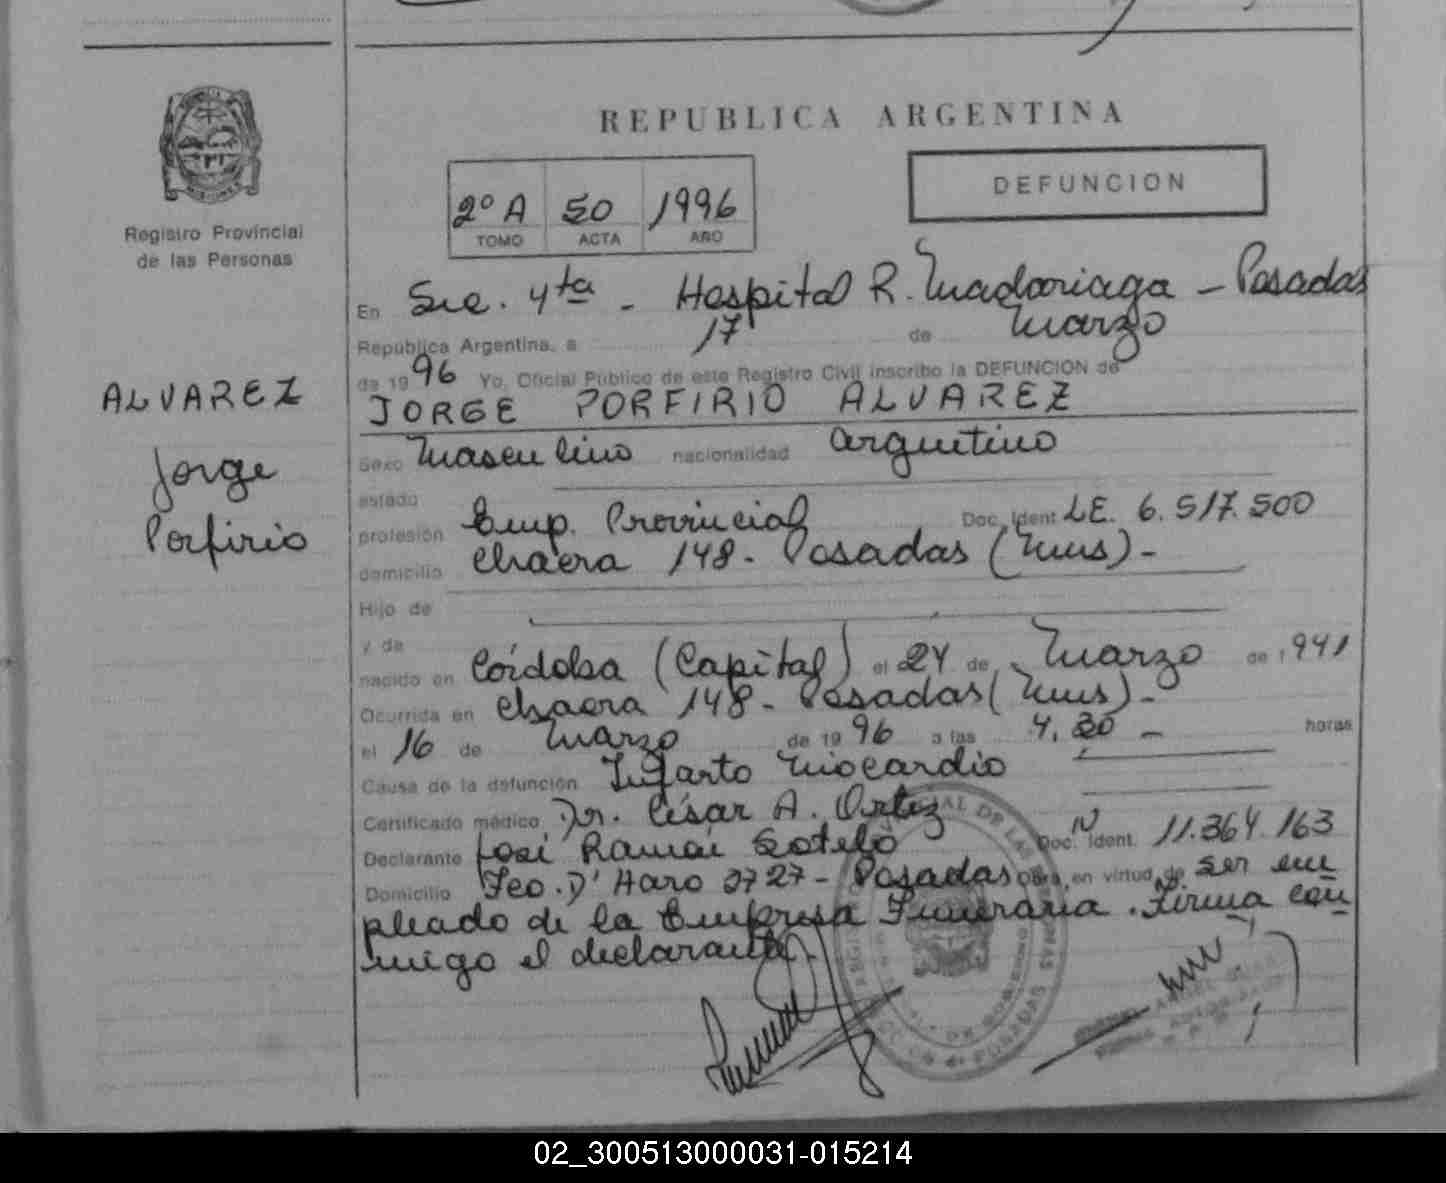 REPUBLICA ARGENTINA
DEFUNCION
2º A 50 1996
TOMO ACTA AÑO
Registro Provincial
de las Personas
En Sec. 4ta - Hospital R. Madariaga - Posadas
República Argentina, a 17 de Marzo
de 1996 Yo, Oficial Público de este Registro Civil inscribo la DEFUNCION de
JORGE PORFIRIO ALVAREZ
ALVAREZ
Jorge
Porfirio
Sexo Masculino nacionalidad argentino
estado
profesión Emp. Provincial Doc. Ident. LE. 6.517.500
domicilio Chacra 148 - Posadas (Mnes) -
Hijo de
y de
nacido en Córdoba (Capital) el 24 de Marzo de 1941
Ocurrida en Chacra 148 - Posadas (Mnes) -
el 16 de Marzo de 1996 a las 4.30 - horas
Causa de la defunción Infarto Miocardio
Certificado médico Dr. César A. Ortiz
Declarante José Ramón Sotelo Doc. Ident. 11.364.163
Domicilio Fco. D' Haro 2727 - Posadas Obra, en virtud de ser em
pleado de la Empresa Funeraria. Firma con
migo el declarante.
POSADAS
02_300513000031-015214